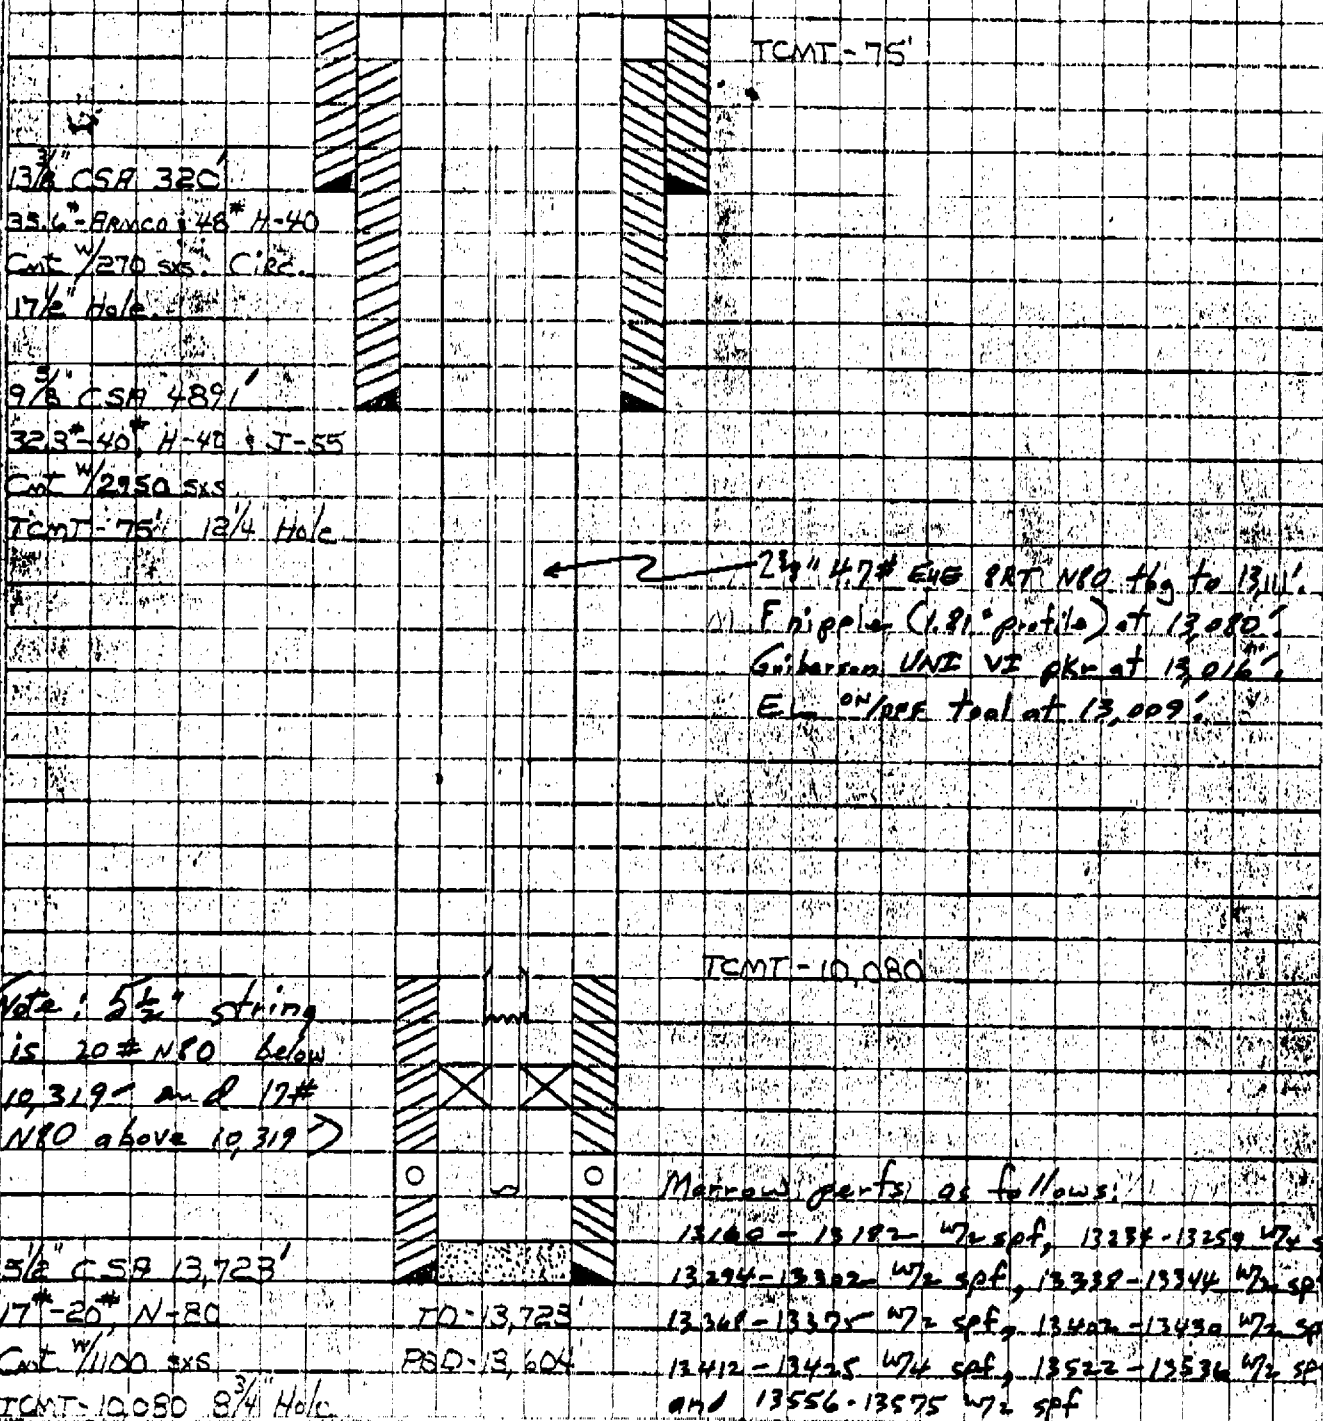 TCMT-75'
13 3/8" CSA 320'
35.6#-ARMCO & 48# H-40
Cmt w/270 sxs. Circ.
17 1/2" Hole
9 5/8" CSA 4891'
32.3#-40#, H-40 & J-55
Cmt w/2950 sxs
TCMT-75' 12 1/4 Hole
2 3/8" 4.7# EUE 8RT N80 tbg to 13,111'.
F nipple (1.81" profile) at 13,080'.
Guiberson UNI VI pkr at 13,016'.
EL on/off tool at 13,009'.
TCMT-10,080'
Note: 5 1/2" string
is 20# N80 below
10,319' and 17#
N80 above 10,319')
Morrow perfs as follows:
13160-13182 w/2 spf, 13234-13259 w/4 s
13294-13302 w/2 spf, 13338-13344 w/2 sp
13368-13375 w/2 spf, 13402-13430 w/2 sp
13412-13425 w/4 spf, 13522-13536 w/2 sp
and 13556-13575 w/2 spf
5 1/2" CSA 13,723'
17#-20#, N-80
Cmt w/1100 sxs
TCMT-10,080 8 3/4" Hole
TD-13,723'
PBD-13,604